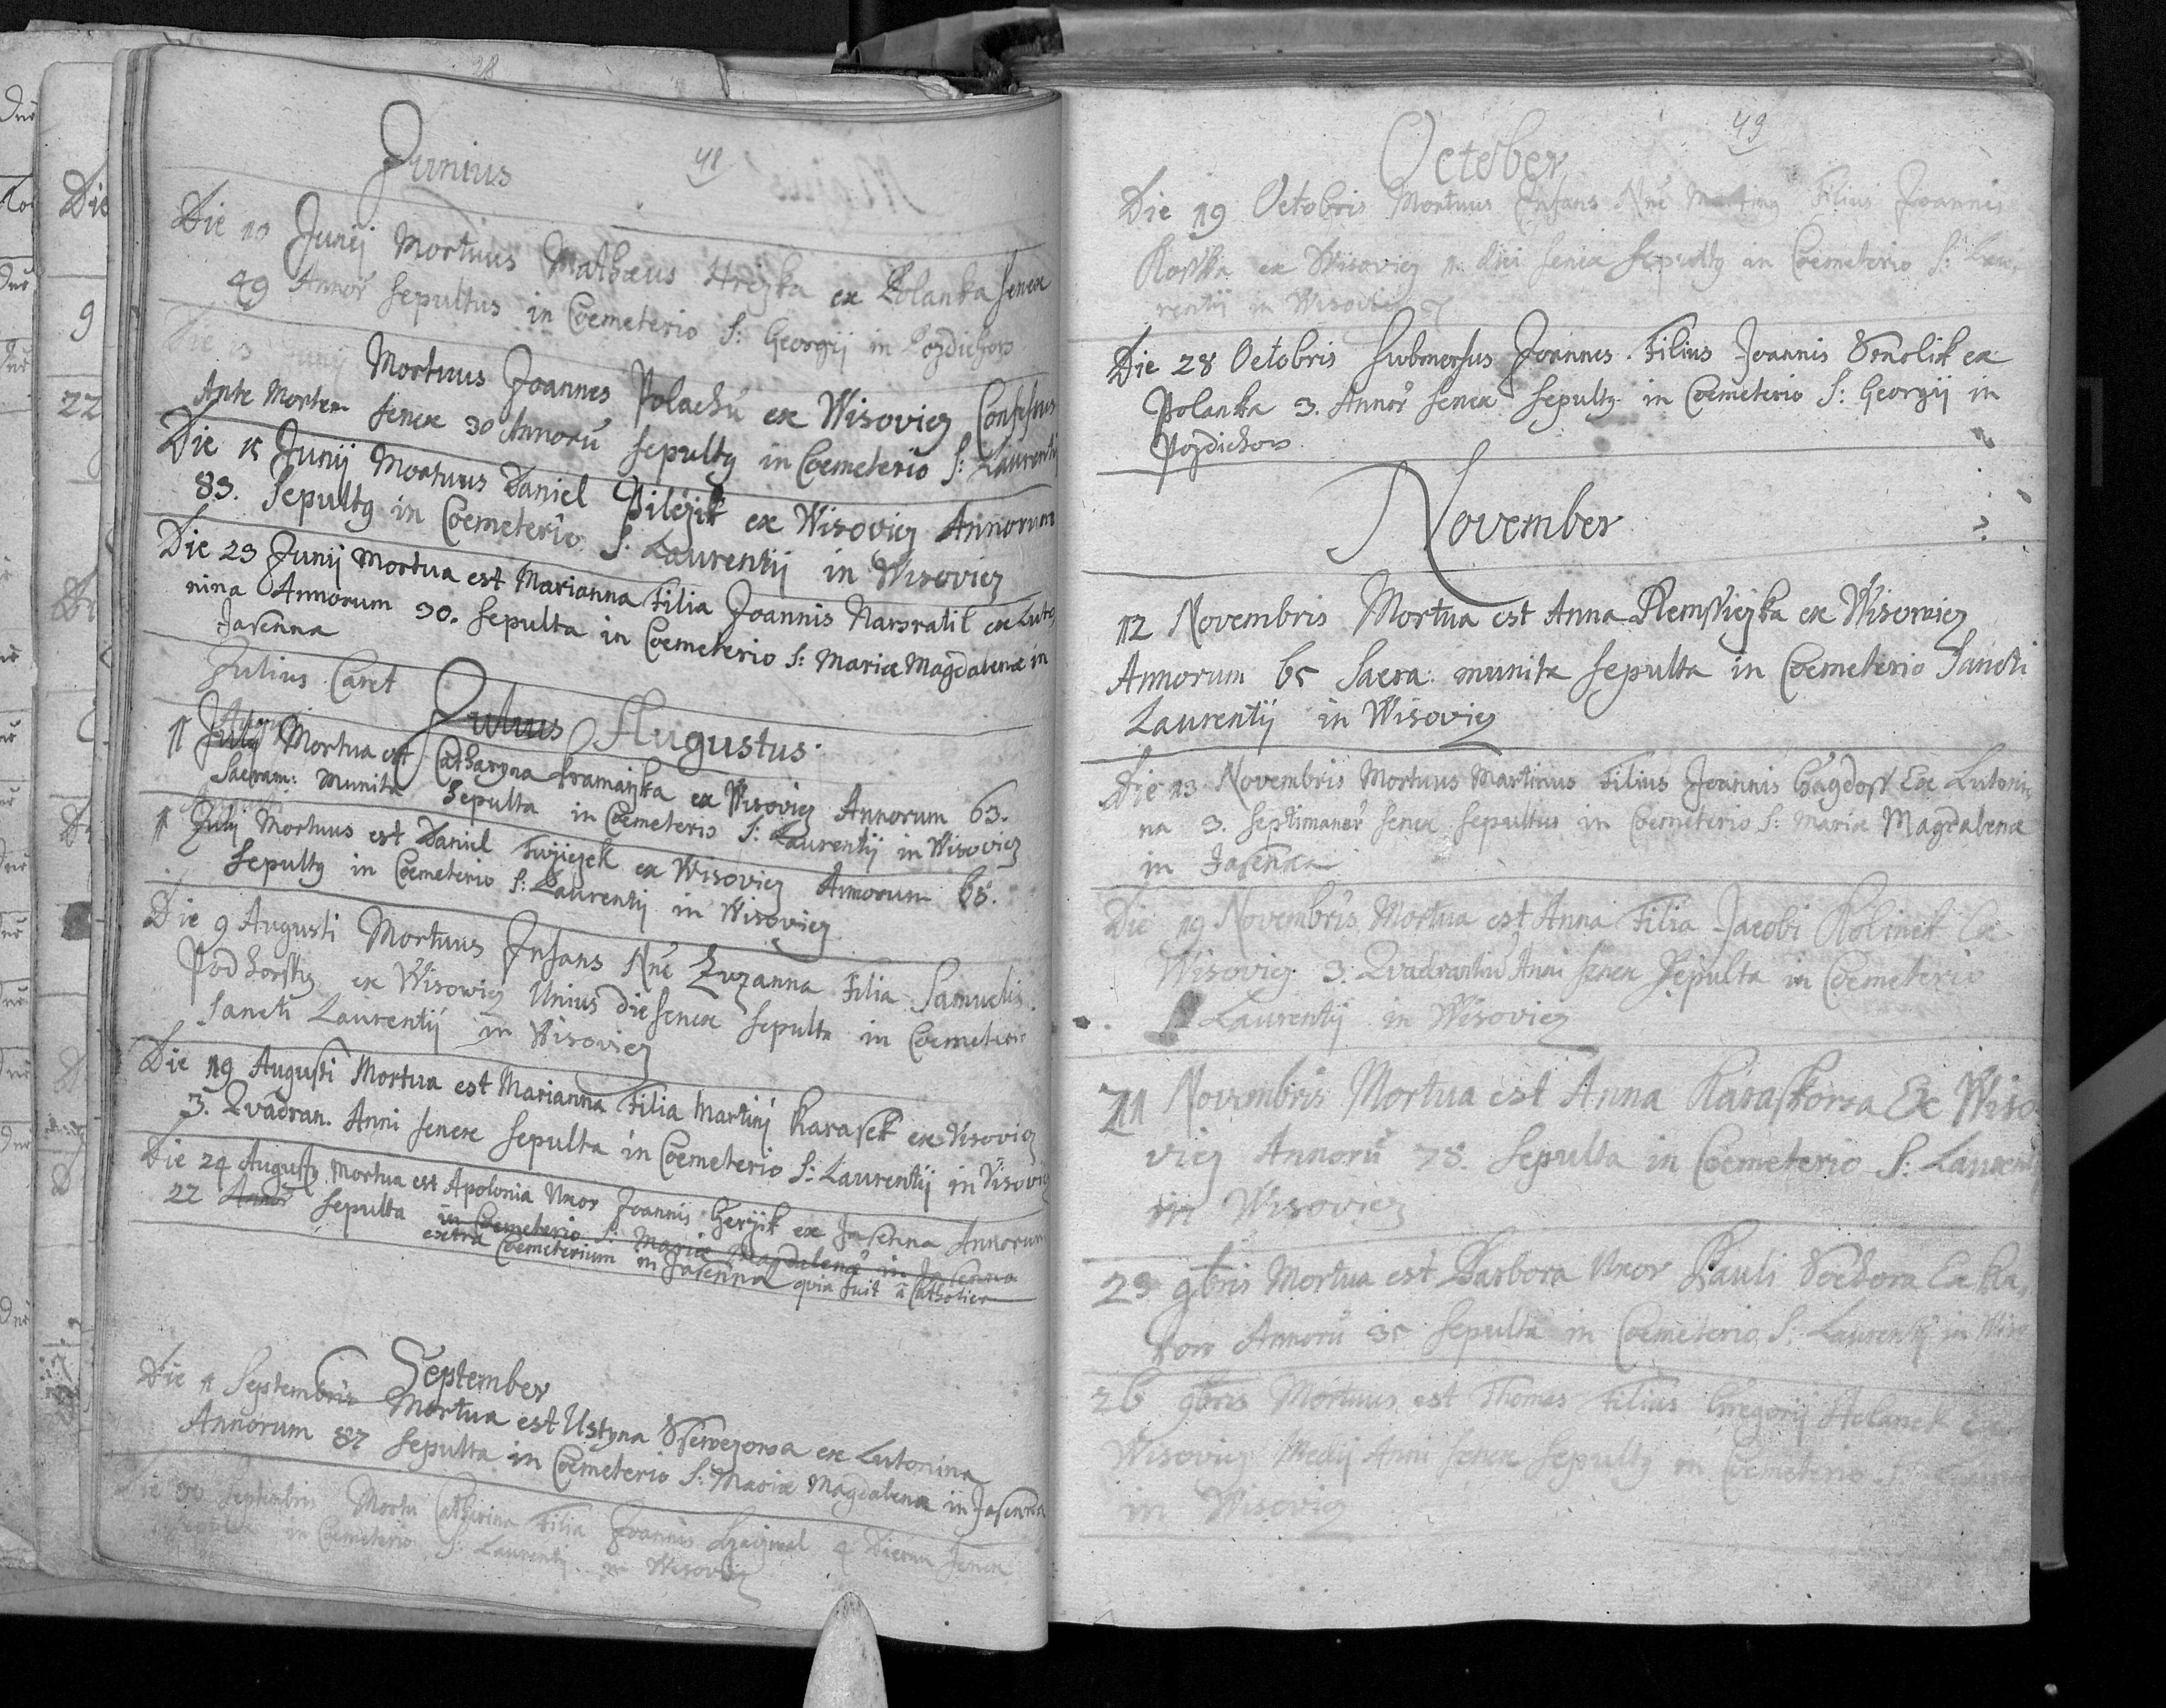 Junius 48
Die 10 Junij Mortuus Mathæus Hrejka ex Polanka senex
49 Annoř sepultus in Cœmeterio S: Georgij in Pozdichow
Die 13 Junij Mortuus Joannes Polachů ex Wisovicz Confessus
Ante Mortem senex 30 Annorũ sepultg in Cœmeterio S: Laurentij
Die 15 Junij Mortuus Daniel Pilčzik ex Wisovicz Annorum
83. Sepultg in Cœmeterio S. Laurentij in Wisovicz
Die 23 Junij Mortua est Marianna Filia Joannis Nawratil ex Luto
nina Annorum 30. Sepulta in Cœmeterio S: Mariæ Magdalenæ in
Jasenna
Julius Caret
Julius Augustus
Augusti
11 Julij Mortua est Catharyna Kramařzka ex Wisovicz Annorum 63.
Sacram: Munita Sepulta in Cœmeterio S: Laurentij in Wisovicz
11 Julij Mortuus est Daniel ex Wisovicz Annorum 65.
Sepultg in Cœmeterio S: Laurentij in Wisovicz
Die 9 Augusti Mortuus Infans Nñe Zuzanna Filia Samuelis
Podhorsky ex Wisowicz Unius die senex sepulta in Cœmeterio
Sancti Laurentij in Wisovicz
Die 19 Augusti Mortua est Marianna Filia Martinj Karasek ex Wisovicz
3. Qvadran. Anni senex sepulta in Cœmeterio S: Laurentij in Wisovicz
Die 24 Augusti Mortua est Apolonia Uxor Joannis Geržik ex Jasenna Annorum
22 Annoř sepulta in Cœmeterio S: Mariæ Magdalenæ in Jasenna
extra Cœmeterium in Jasenna qvia fuit a Catholica
September
Die 11 Septembris Mortua est Ustyna ex Lutonina
Annorum 87 sepulta in Cœmeterio S: Mariæ Magdalenæ in Jasenna
Die 30 Septembris Mortu Catharina Filia Joannis 4 Dierum senex
sepulta in Cœmeterio S: Laurentij in Wisovicz
October 49
Die 19 Octobris Mortuus Infans Nñe Marting Filius Joannis
ex Wisovicz 11 dici senex Sepultg in Cœmeterio S: Lau
rentij in Wisovicz
Die 28 Octobris Submersus Joannes Filius Joannis Smolik ex
Polanka 3. Annoř senex sepultg in Cœmeterio S: Georgij in
Pozdichow
November
12 Novembris Mortua est Anna ex Wisowicz
Annorum 65 Sacra: munita sepulta in Cœmeterio Sancti
Laurentij in Wisovicz
Die 13 Novembris Mortuus Martinus Filius Joannis Gagdoss Ex Lutoni
na 3. Septimanař senex sepultus in Cœmeterio S: Mariæ Magdalenæ
in Jasenna
Die 19 Novembris Mortua est Anna Filia Jacobi Kolinek Ex
Wisovicz 3. Qvadrantiũ Anni senex Sepulta in Cœmeterio
S Laurentij in Wisovicz
21 Novembris Mortua est Anna Karaskowa Ex Wiso
vicz Annorũ 78. Sepulta in Cœmeterio S: Laurentij
in Wisovicz
23 9bris Mortua est Barbora Uxor Pauli Ex Ka
row Annorũ 35 sepulta in Cœmeterio S. Laurentij in Wiso
26 9bris Mortuus est Thomas Filius Gregorij Holanek Ex
Wisovicz Medij Anni senex sepultg in Cœmeterio S:
in Wisovicz